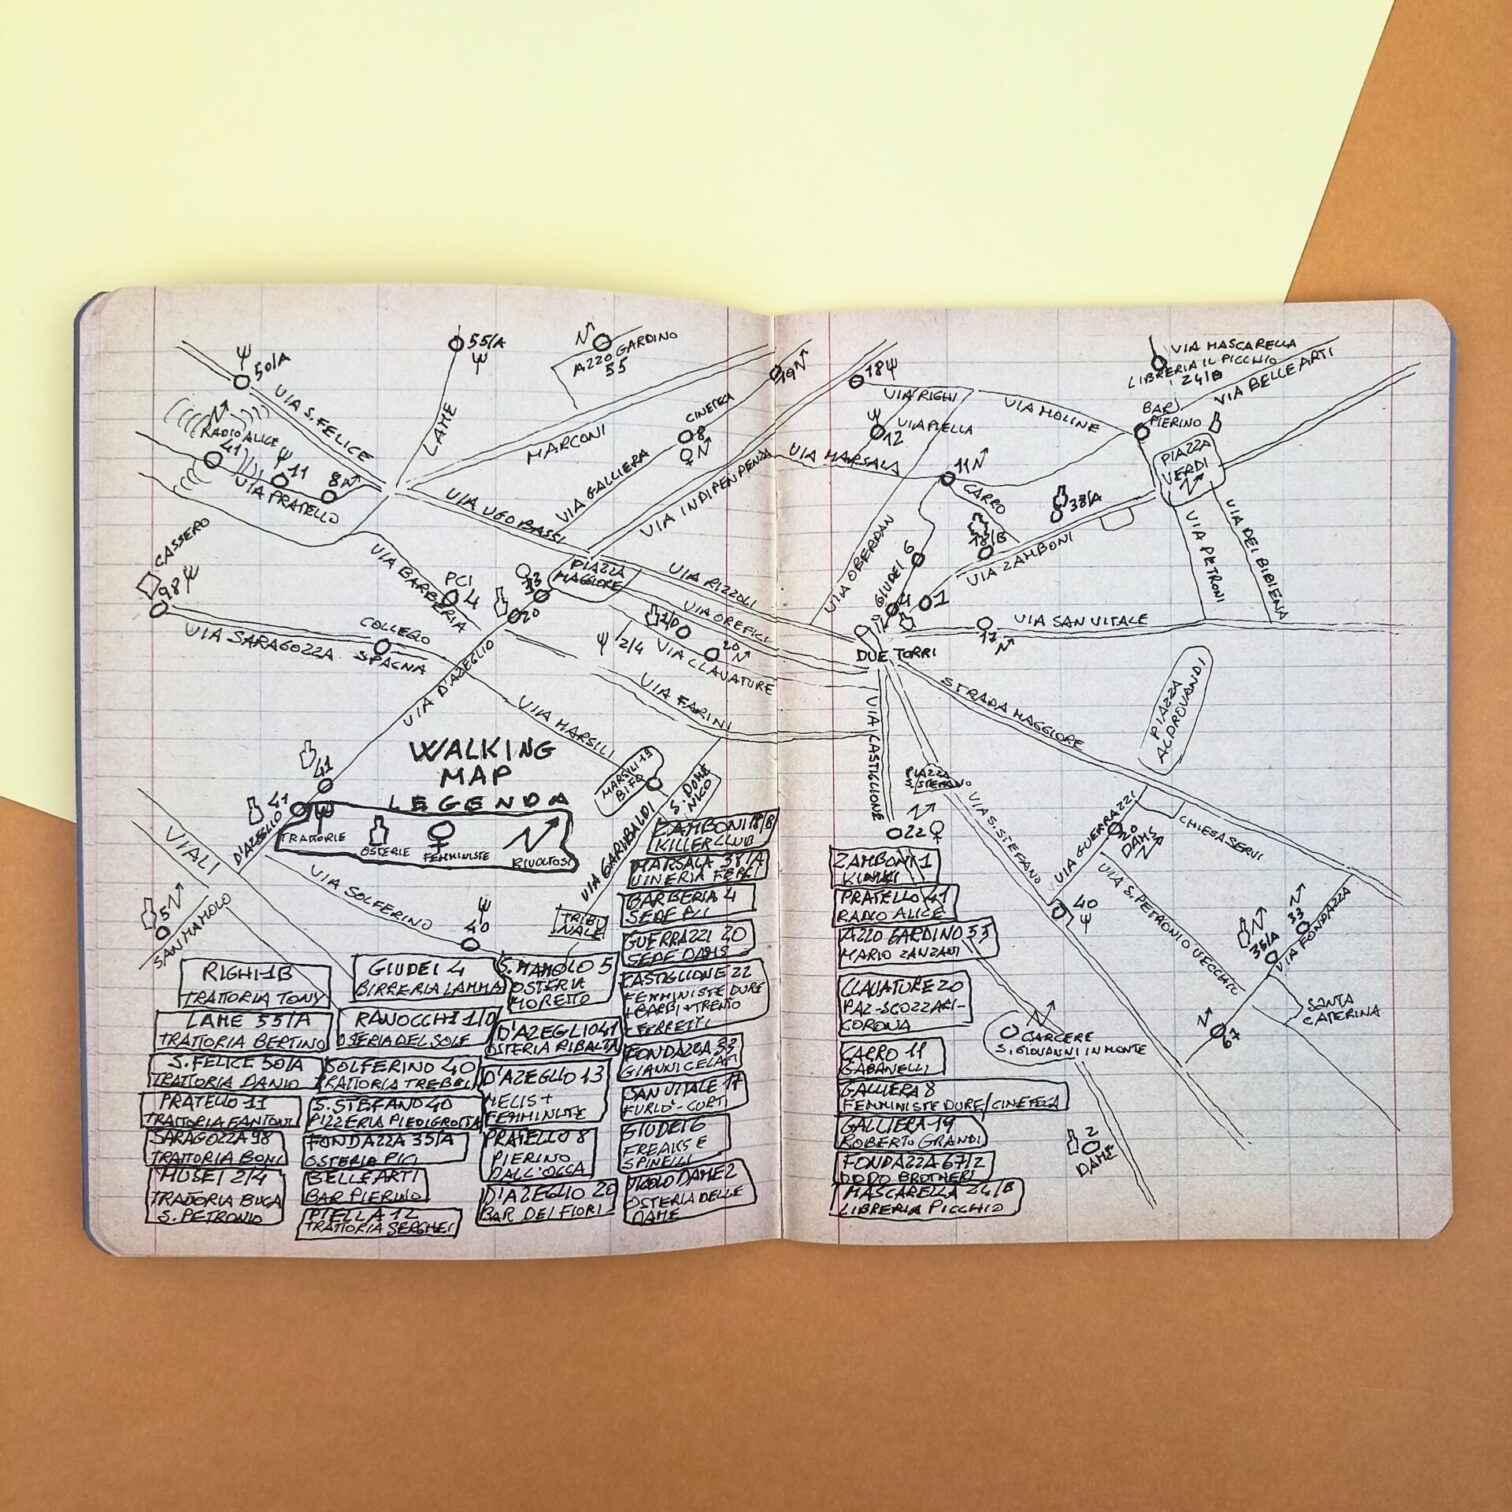 50/A
VIA S. FELICE
RADIO ALICE
41
11
8
VIA PRATELLO
55/A
LAME
AZZO GARDINO
55
MARCONI
CINETECA
8
VIA GALLIERA
VIA INDIPENDENZA
19
VIA UGO BASSI
PIAZZA
MAGGIORE
VIA RIZZOLI
VIA OREFICI
VIA CLAVATURE
20
1/D
2/4
VIA FARINI
CASSERO
98
VIA SARAGOZZA
COLLEGIO
SPAGNA
VIA BARBERIA
PCI
4
13
20
VIA D'AZEGLIO
VIA MARSILI
MARSILI 19
BIFO
S. DOME
NICO
VIA GARIBALDI
TRIBU
NALE
41
41
D'AZEGLIO
VIALI
5
SAN MAMOLO
VIA SOLFERINO
40
WALKING
MAP
LEGENDA
TRATTORIE
OSTERIE
FEMMINISTE
RIVOLTOSI
18
VIA RIGHI
VIA MOLINE
12
VIA PIELLA
VIA MARSALA
11
CARRO
VIA OBERDAN
GIUDEI 6
4
1
18/B
38/A
VIA ZAMBONI
VIA MASCARELLA
LIBRERIA IL PICCHIO
24/B
VIA BELLE ARTI
BAR
PIERINO
PIAZZA
VERDI
VIA PETRONI
VIA DEI BIBIENA
VIA SAN VITALE
17
DUE TORRI
STRADA MAGGIORE
PIAZZA
ALDROVANDI
VIA CASTIGLIONE
22
PIAZZA
S. STEFANO
VIA S. STEFANO
VIA GUERRAZZI
20
DAMS
CHIESA SERVI
VIA S. PETRONIO VECCHIO
40
35/A
33
VIA FONDAZZA
67
SANTA
CATERINA
CARCERE
S. GIOVANNI IN MONTE
2
DAME
RIGHI 1B
TRATTORIA TONY
LAME 55/A
TRATTORIA BERTINO
S. FELICE 50/A
TRATTORIA DANIO
PRATELLO 11
TRATTORIA FANTONI
SARAGOZZA 98
TRATTORIA BONI
MUSEI 2/4
TRATTORIA BUCA
S. PETRONIO
GIUDEI 4
BIRRERIA LAMMA
RANOCCHI 1/D
OSTERIA DEL SOLE
SOLFERINO 40
TRATTORIA TREBBI
S. STEFANO 40
PIZZERIA PIEDIGROTTA
FONDAZZA 35/A
OSTERIA PIGI
BELLE ARTI
BAR PIERINO
PIELLA 12
TRATTORIA SERGHEI
S. MAMOLO 5
OSTERIA
MORETTO
D'AZEGLIO 41
OSTERIA RIBALTA
D'AZEGLIO 13
MELIS +
FEMMINISTE
PRATELLO 8
PIERINO
DALL'OCCA
D'AZEGLIO 20
BAR DEI FIORI
ZAMBONI 18/B
KILLER CLUB
MARSALA 35/A
VINERIA
BARBERIA 4
SEDE PCI
GUERRAZZI 20
SEDE DAMS
CASTIGLIONE 22
FEMMINISTE DURE
+ BARBI + TRENTO
+ FERRETTI
FONDAZZA 33
GIANNI CELATI
SAN VITALE 17
FURLÒ-CURTI
GIUDEI 6
FREAKS E
SPINELLI
VICOLO DAME 2
OSTERIA DELLE
DAME
ZAMBONI 1
PRATELLO 41
RADIO ALICE
AZZO GARDINO 53
MARIO ZANZANI
CLAVATURE 20
PAZ-SCOZZARI-
CORONA
CARRO 11
GABANELLI
GALLIERA 8
FEMMINISTE DURE/CINETECA
GALLIERA 19
ROBERTO GRANDI
FONDAZZA 67/2
DODO BROTHERS
MASCARELLA 24/B
LIBRERIA PICCHIO